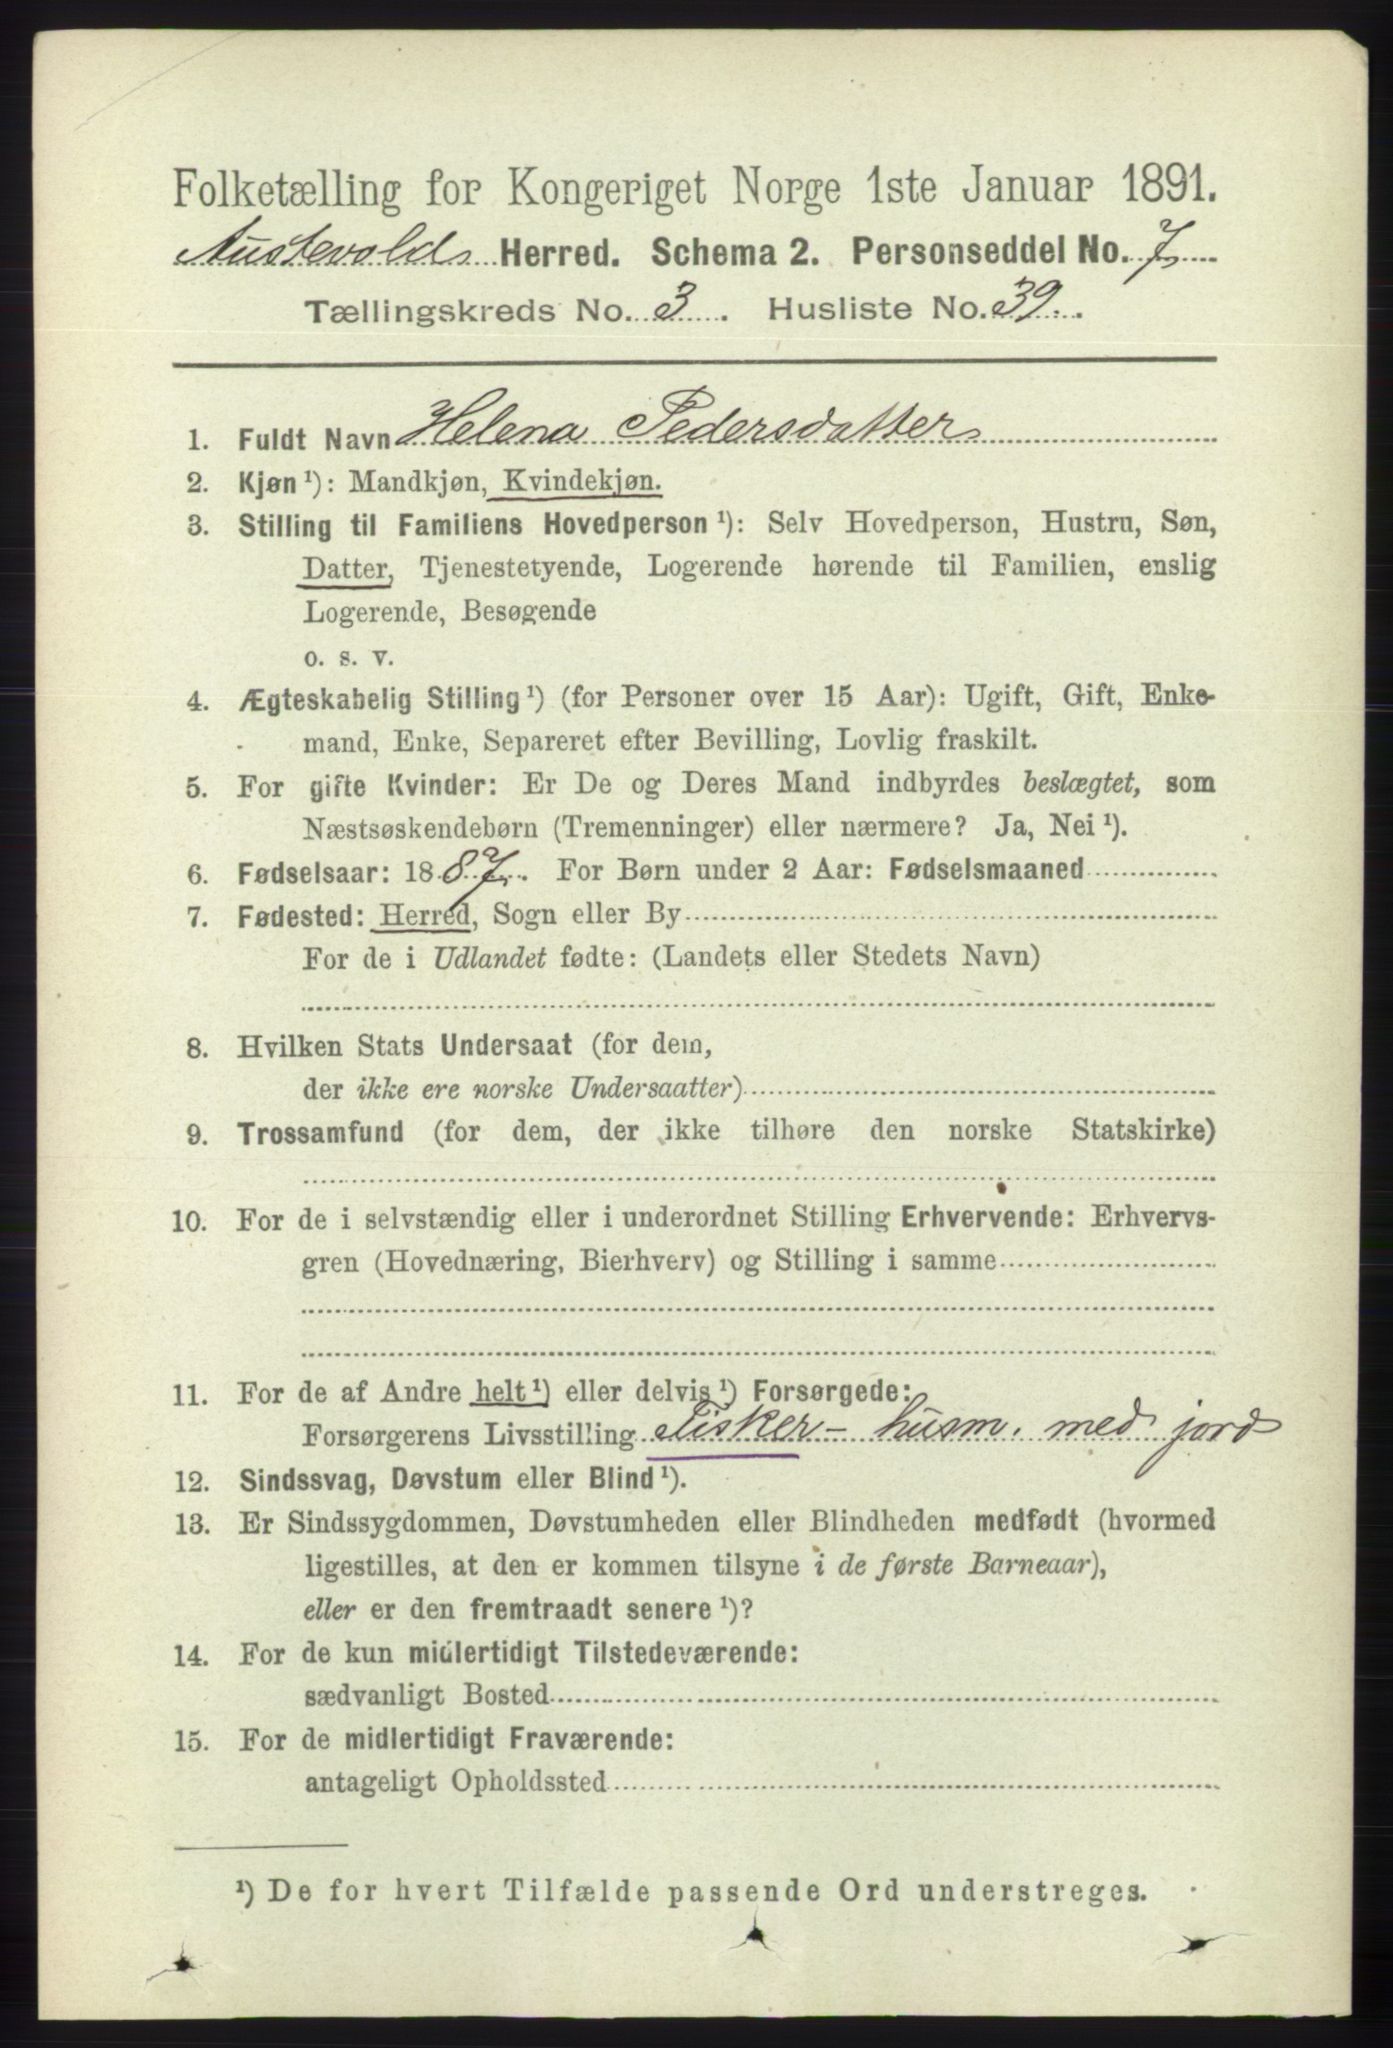 Folketælling for Kongeriget Norge 1ste Januar 1891.
Austevolds Herred. Schema 2. Personseddel No. 7
Tællingskreds No. 3. Husliste No. 39.
1. Fuldt Navn Helena Pedersdatter
2. Kjøn ¹): Mandkjøn, Kvindekjøn.
3. Stilling til Familiens Hovedperson ¹): Selv Hovedperson, Hustru, Søn,
Datter, Tjenestetyende, Logerende hørende til Familien, enslig
Logerende, Besøgende
o. s. v.
4. Ægteskabelig Stilling ¹) (for Personer over 15 Aar): Ugift, Gift, Enke-
mand, Enke, Separeret efter Bevilling, Lovlig fraskilt.
5. For gifte Kvinder: Er De og Deres Mand indbyrdes beslægtet, som
Næstsøskendebørn (Tremenninger) eller nærmere? Ja, Nei ¹).
6. Fødselsaar: 1887. For Børn under 2 Aar: Fødselsmaaned
7. Fødested: Herred, Sogn eller By
For de i Udlandet fødte: (Landets eller Stedets Navn)
8. Hvilken Stats Undersaat (for dem,
der ikke ere norske Undersaatter)
9. Trossamfund (for dem, der ikke tilhøre den norske Statskirke)
10. For de i selvstændig eller i underordnet Stilling Erhvervende: Erhvervs-
gren (Hovednæring, Bierhverv) og Stilling i samme
11. For de af Andre helt ¹) eller delvis ¹) Forsørgede:
Forsørgerens Livsstilling Fisker - husm. med jord
12. Sindssvag, Døvstum eller Blind ¹).
13. Er Sindssygdommen, Døvstumheden eller Blindheden medfødt (hvormed
ligestilles, at den er kommen tilsyne i de første Barneaar),
eller er den fremtraadt senere ¹)?
14. For de kun midlertidigt Tilstedeværende:
sædvanligt Bosted
15. For de midlertidigt Fraværende:
antageligt Opholdssted
¹) De for hvert Tilfælde passende Ord understreges.